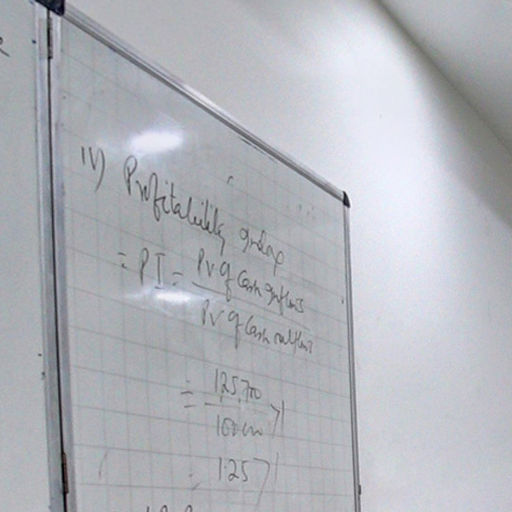 IV) Profitability Index
= PI = PV of Cash inflows
PV of Cash outflows
= 125,700
100000 >1
= 1.25 >1